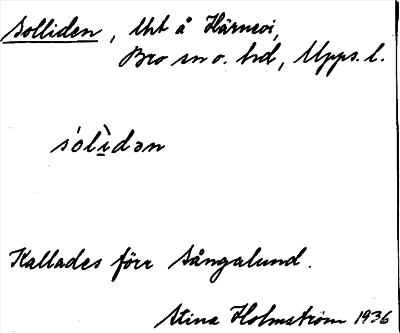 Solliden, Lht å Härnevi,
Bro sn o. hd, Upps. l.
sólìdən
Kallades förr Sångalund.
Stina Holmström 1936